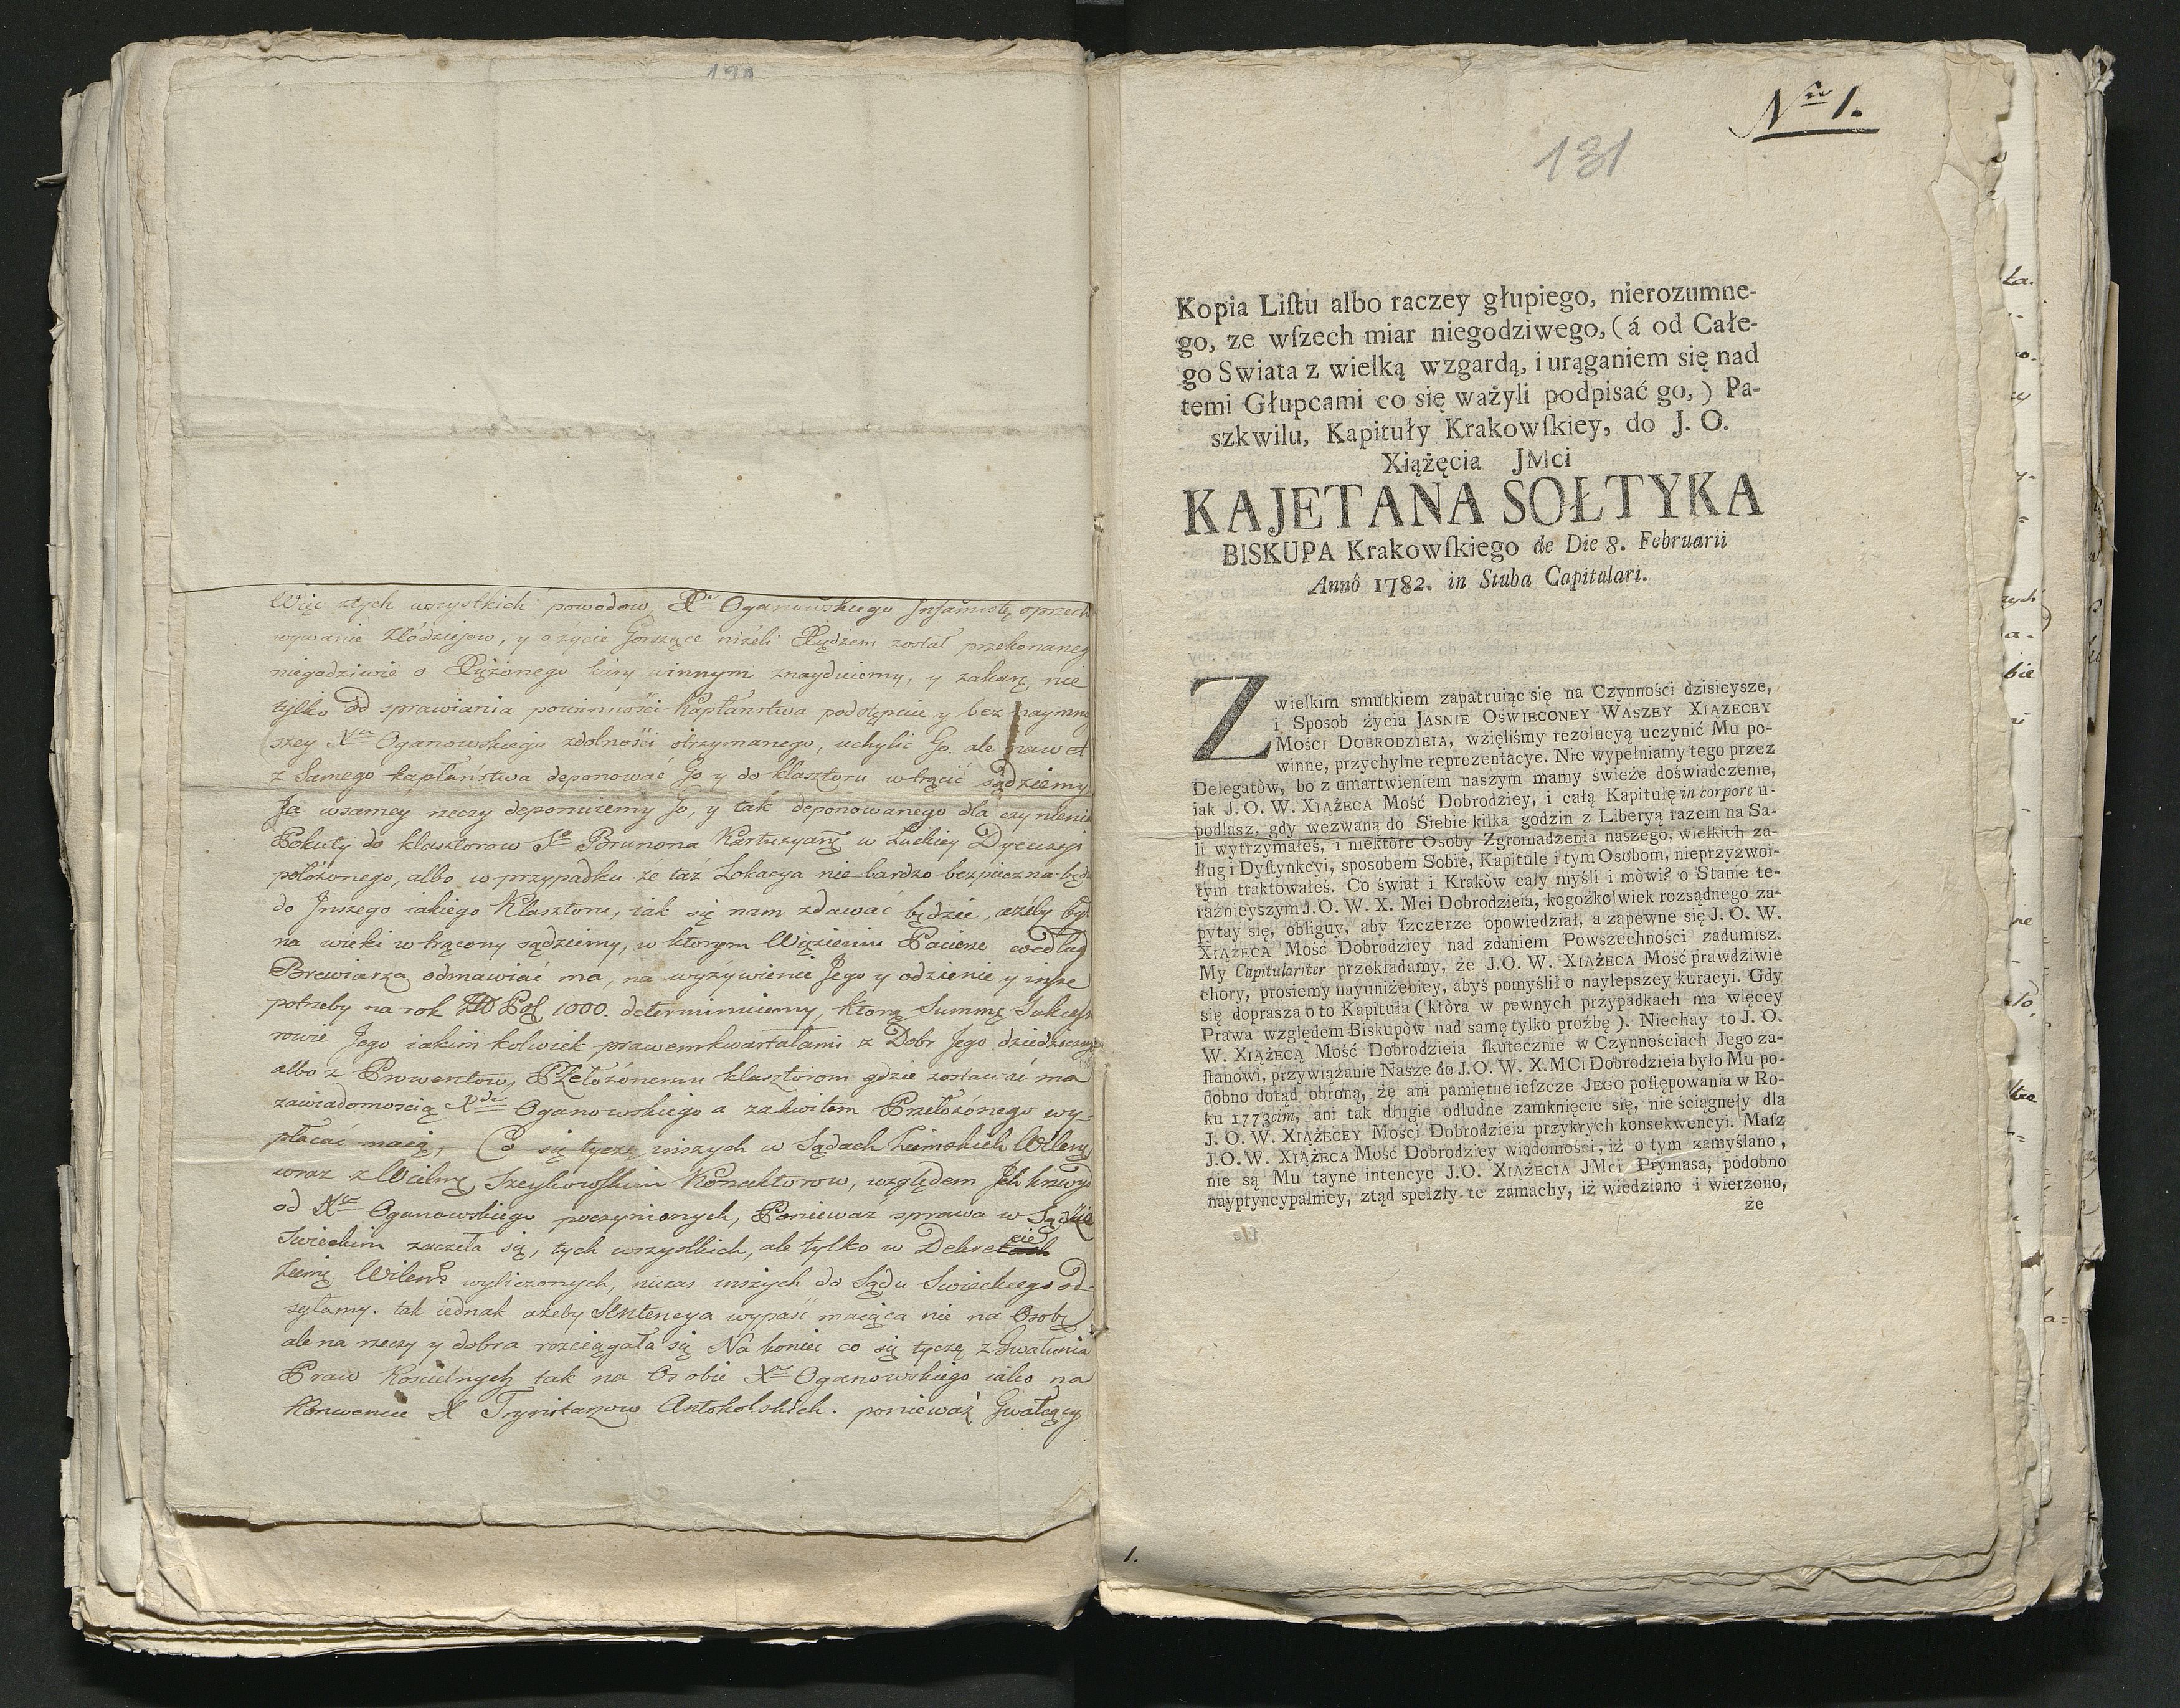 190
Więc ztych wszystkich powodow, X. Oganowskiego Infamistę, oprzech
wywanie Złodziejow, y o zycie Gorszące niżeli Xiędzem został przekonaneg
niegodziwie o Xiężonego kary winnym znayduiemy, y zakarę nie
tylko od sprawiania powinności Kapłanstwa podstępnie y bez naymny
szey Xdza Oganowskiego zdolności otrzymanego, uchylić Go ale nawet
z Samego kapłaństwa deponować Go y do klasztoru wtrącić sądziemy
Ja wsamey rzeczy deponuiemy Go, y tak deponowanego dla czynienia
Pokuty do klasztorow Sgo Brunona Kartuzyanų w Łuckiey Dyecezyi
położonego, albo w przypadku że táż Lokacya nie bardzo bezpieczna będz
do Inszego iakiego Klasztoru, iak się nam zdawać będzie, ażeby był
na wieki wtrącony sądziemy, w ktorym Więzieniu Pacierze według
Brewiarza odmawiać ma, na wyżywienie Jego y odzienie y insze
potrzeby na rok Pol 1000. determinuiemy, ktorą Summę Sukcesso
rowie Jego iakimkolwiek prawem kwartałami z Dobr Jego dziedzicznych
albo z Prowentow, Przełożónemu klasztorom gdzie zostawać ma
zawiadomoscią Xdza Oganowskiego a zakwitem Przełożónego wy-
płacać maią, Co się tycze inszych w Sądach Ziemskich Wileny
wraz z Wielmę Szeykowskim Konaktorow, względem Ich krzywd
od Xdza Oganowskiego poczynionych, Poniewaz sprawa w Sądzie
Swieckim zaczeła się, tych wszystkich, ale tylko w Dekrecie
Ziemę Wilens wyliczonych, niezas inszych do Sądu Swieckiego od-
syłamy. tak iednak ażeby Sentencya wypaść maiąca nie na Osobę
ale na rzeczy y dobra rozciągała się Na koniec co się tyczę zGwałcenia
Praw Koscielnych tak na Osobie Xdza Oganowskiego iako na
Konwencie X Trynitarzow Antokolskich. ponieważ Gwałcący
Nro 1.
131
Kopia Liſtu albo raczey głupiego, nierozumne-
go, ze wſzech miar niegodziwego, (á od Całe-
go Swiata z wielką wzgardą, i urąganiem się nad
temi Głupcami co się ważyli podpisać go,) Pa-
szkwilu, Kapituły Krakowſkiey, do J. O.
Xiążęcia JMci
KAJETANA SOŁTYKA
BISKUPA Krakowſkiego de Die 8. Februarii
Annô 1782. in Stuba Capitulari.
Z wielkim smutkiem zapatruiąc się na Czynności dzisieysze,
i Sposob życia JASNIE OSWIECONEY WASZEY XIĄZECEY
MOŚCI DOBRODZIEIA, wzięliśmy rezolucyą uczynić Mu po-
winne, przychylne reprezentacye. Nie wypełniamy tego przez
Delegatòw, bo z umartwieniem naszym mamy świeże doświadczenie,
iak J. O. W. XIĄŻECA Mość Dobrodziey, i całą Kapitułę in corpore u-
podlasz, gdy wezwaną do Siebie kilka godzin z Liberyą razem na Sa-
li wytrzymałeś, i niektóre Osoby Zgromadzenia naszego, wielkich za-
ſług i Dyſtynkcyi, sposobem Sobie, Kapitule i tym Osobom, nieprzyzwoi-
tym traktowałeś. Co świat i Krakòw cały myśli i mòwi? o Stanie te-
raźnieyszym J. O. W. X. Mci Dobrodzieia, kogożkolwiek rozsądnego za-
pytay się, obliguy, aby ſzczerze opowiedział, a zapewne się J. O. W.
XIĄŻĘCA Mość Dobrodziey nad zdaniem Powszechności zadumisz.
My Capitulariter przekładamy, że J. O. W. XIĄŻECA Mość prawdziwie
chory, prosiemy nayuniżeniey, abyś pomyślił o naylepszey kuracyi. Gdy
się doprasza o to Kapituła (ktòra w pewnych przypadkach ma więcey
Prawa względem Biskupòw nad samę tylko proźbę). Niechay to J. O.
W. XIĄŻECĄ Mość Dobrodzieia ſkutecznie w Czynnościach Jego za-
ſtanowi, przywiązanie Nasze do J. O. W. X. MCi Dobrodzieia było Mu po-
dobno dotąd obroną, że ani pamiętne ieſzcze JEGO poſtępowania w Ro-
ku 1773cim, ani tak długie odludne zamknięcie się, nie ściągneły dla
J. O. W. XIĄŻECEY Mości Dobrodzieia przykrych konsekwencyi. Maſz
J. O. W. XIĄŻECA Mość Dobrodziey wiadomości, iż o tym zamyślano,
nie są Mu tayne intencye J.O. XIĄŻECIA JMci Prymasa, podobno
nayptyncypalniey, ztąd spełzły te zamachy, iż wiedziano i wierzono,
że
1.